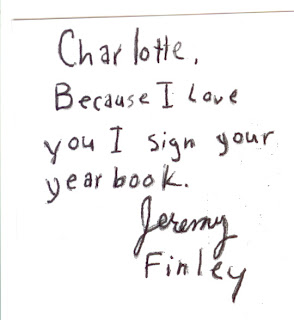 Charlotte,
Because I Love
you I sign your
yearbook.
Jeremy
Finley